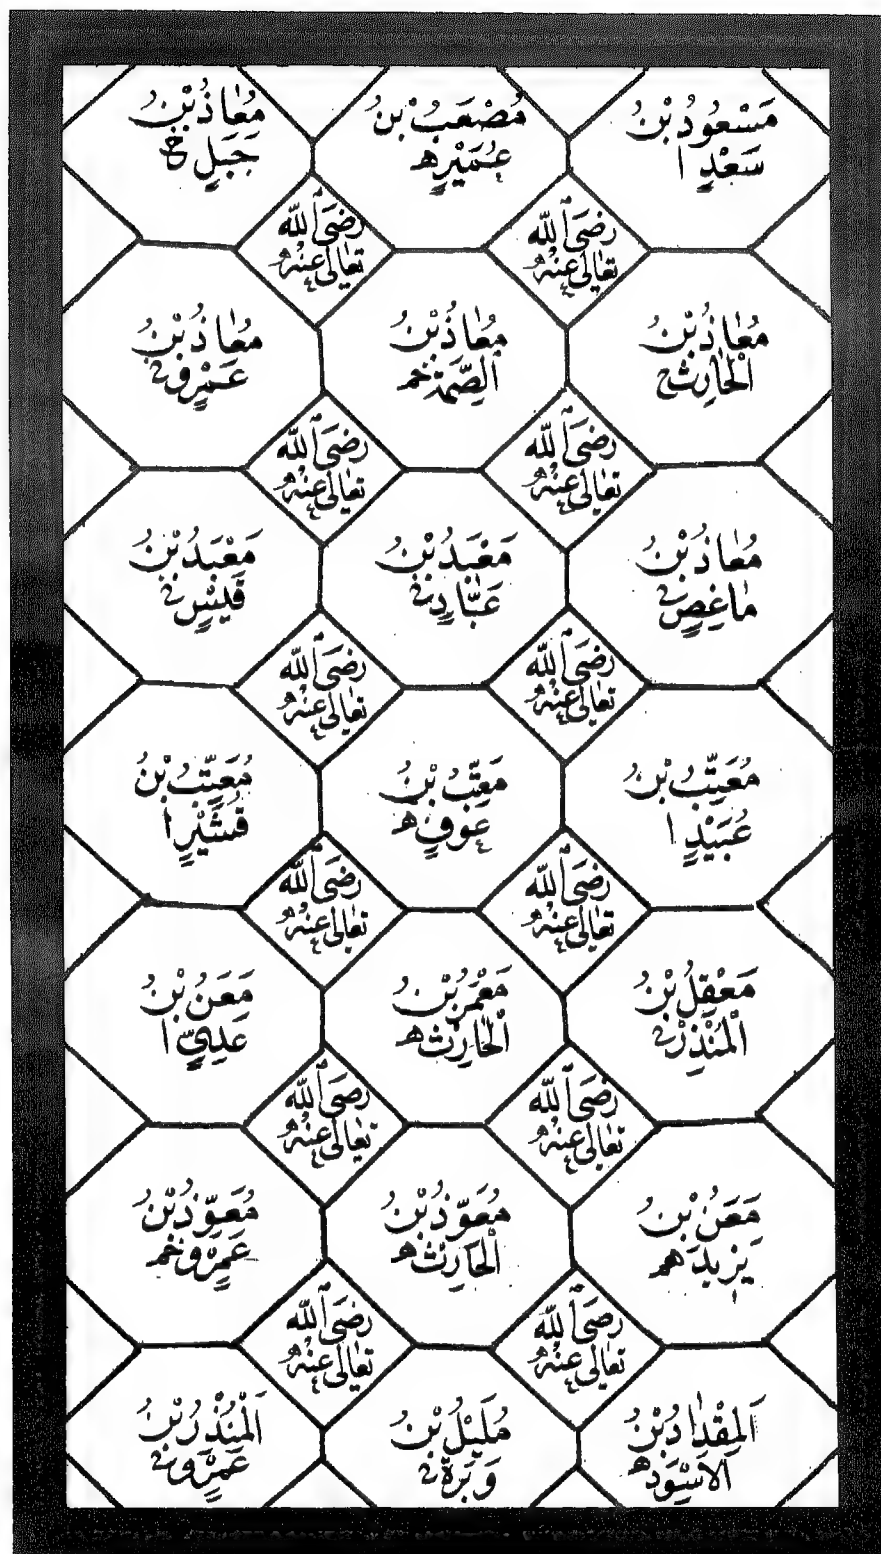 مَسْعُودُ بْنُ
سَعْدٍ ا
مُصْعَبُ بْنُ
عُمَيْرٍ ھ
مُعَاذُ بْنُ
جَبَلٍ خ
رَضِيَ اللّٰه
تَعَالٰى عَنْهُ
رَضِيَ اللّٰه
تَعَالٰى عَنْهُ
مُعَاذُ بْنُ
الْحَارِثِ ج
مُعَاذُ بْنُ
الصِّمَّةِ خمہ
مُعَاذُ بْنُ
عَمْرٍو خ
رَضِيَ اللّٰه
تَعَالٰى عَنْهُ
رَضِيَ اللّٰه
تَعَالٰى عَنْهُ
مُعَاذُ بْنُ
مَاعِصٍ خ
مَعْبَدُ بْنُ
عَبَّادٍ خ
مَعْبَدُ بْنُ
قَيْسٍ خ
رَضِيَ اللّٰه
تَعَالٰى عَنْهُ
رَضِيَ اللّٰه
تَعَالٰى عَنْهُ
مُعَتِّبُ بْنُ
عُبَيْدٍ ا
مُعَتِّبُ بْنُ
عَوْفٍ ھ
مُعَتِّبُ بْنُ
قُشَيْرٍ ا
رَضِيَ اللّٰه
تَعَالٰى عَنْهُ
رَضِيَ اللّٰه
تَعَالٰى عَنْهُ
مَعْقِلُ بْنُ
الْمُنْذِرِ خ
مَعْمَرُ بْنُ
الْحَارِثِ ھ
مَعَنُ بْنُ
عَدِيٍّ ا
رَضِيَ اللّٰه
تَعَالٰى عَنْهُ
رَضِيَ اللّٰه
تَعَالٰى عَنْهُ
مَعَنُ بْنُ
يَزِيدَ ھمہ
مُعَوِّذُ بْنُ
الْحَارِثِ ھ
مُعَوِّذُ بْنُ
عَمْرٍو خمہ
رَضِيَ اللّٰه
تَعَالٰى عَنْهُ
رَضِيَ اللّٰه
تَعَالٰى عَنْهُ
الْمِقْدَادُ بْنُ
الْاَسْوَدِ ھ
مُلَيْلُ بْنُ
وَبَرَةَ خ
الْمُنْذِرُ بْنُ
عَمْرٍو خ